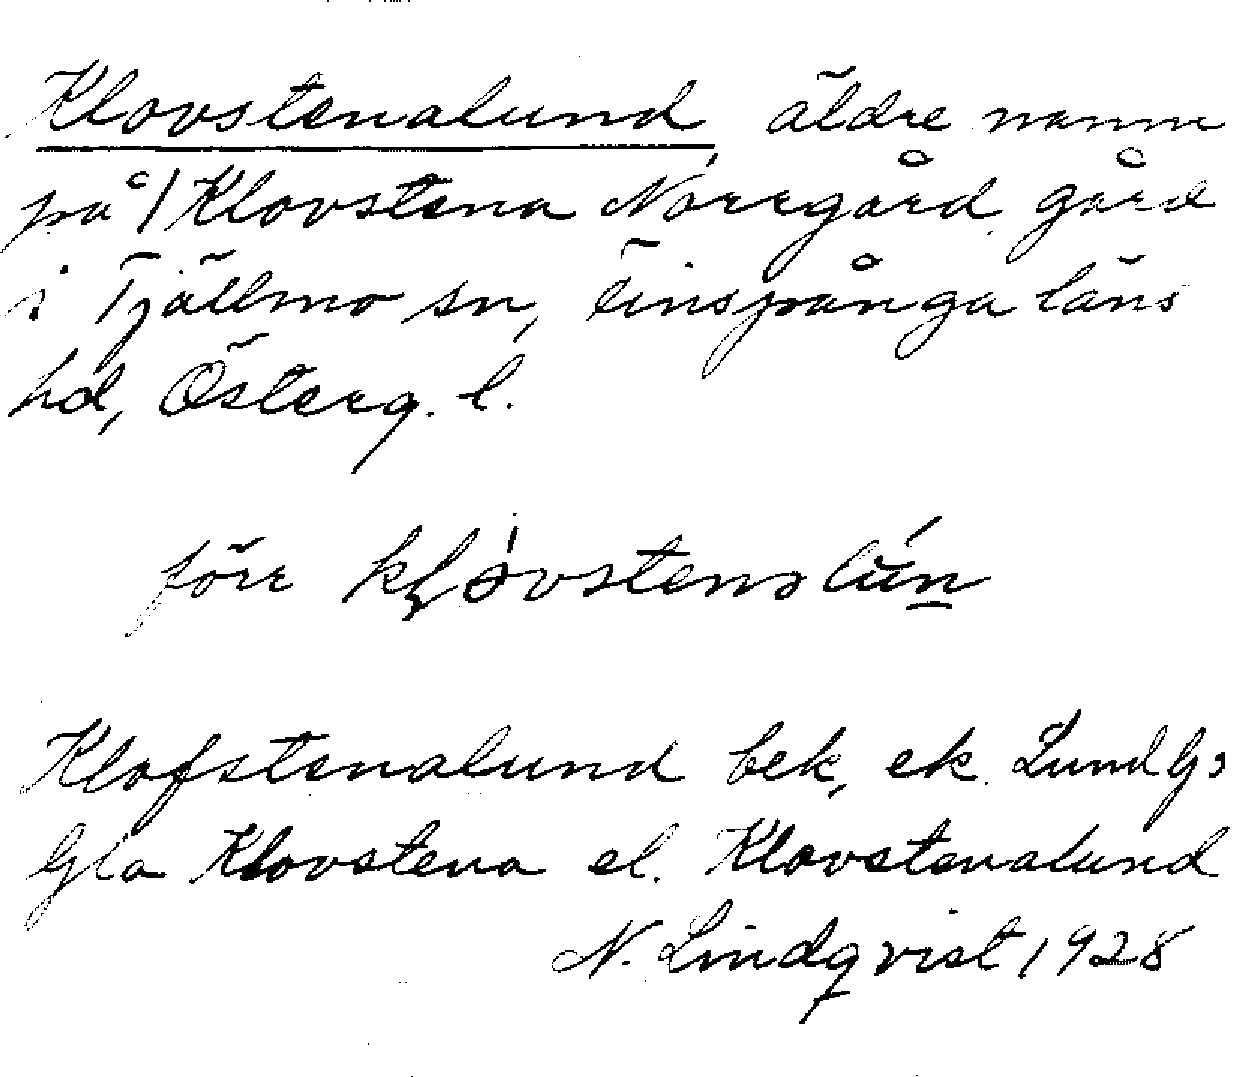 Klovstenalund äldre namn
på 1 Klovstena Norrgård, gård
i Tjällmo sn, Finspånga läns
hd, Österg. l.
förr
Klofstenalund bek, ek.
Gla Klovstena el. Klovstenalund
N. Lindqvist 1928